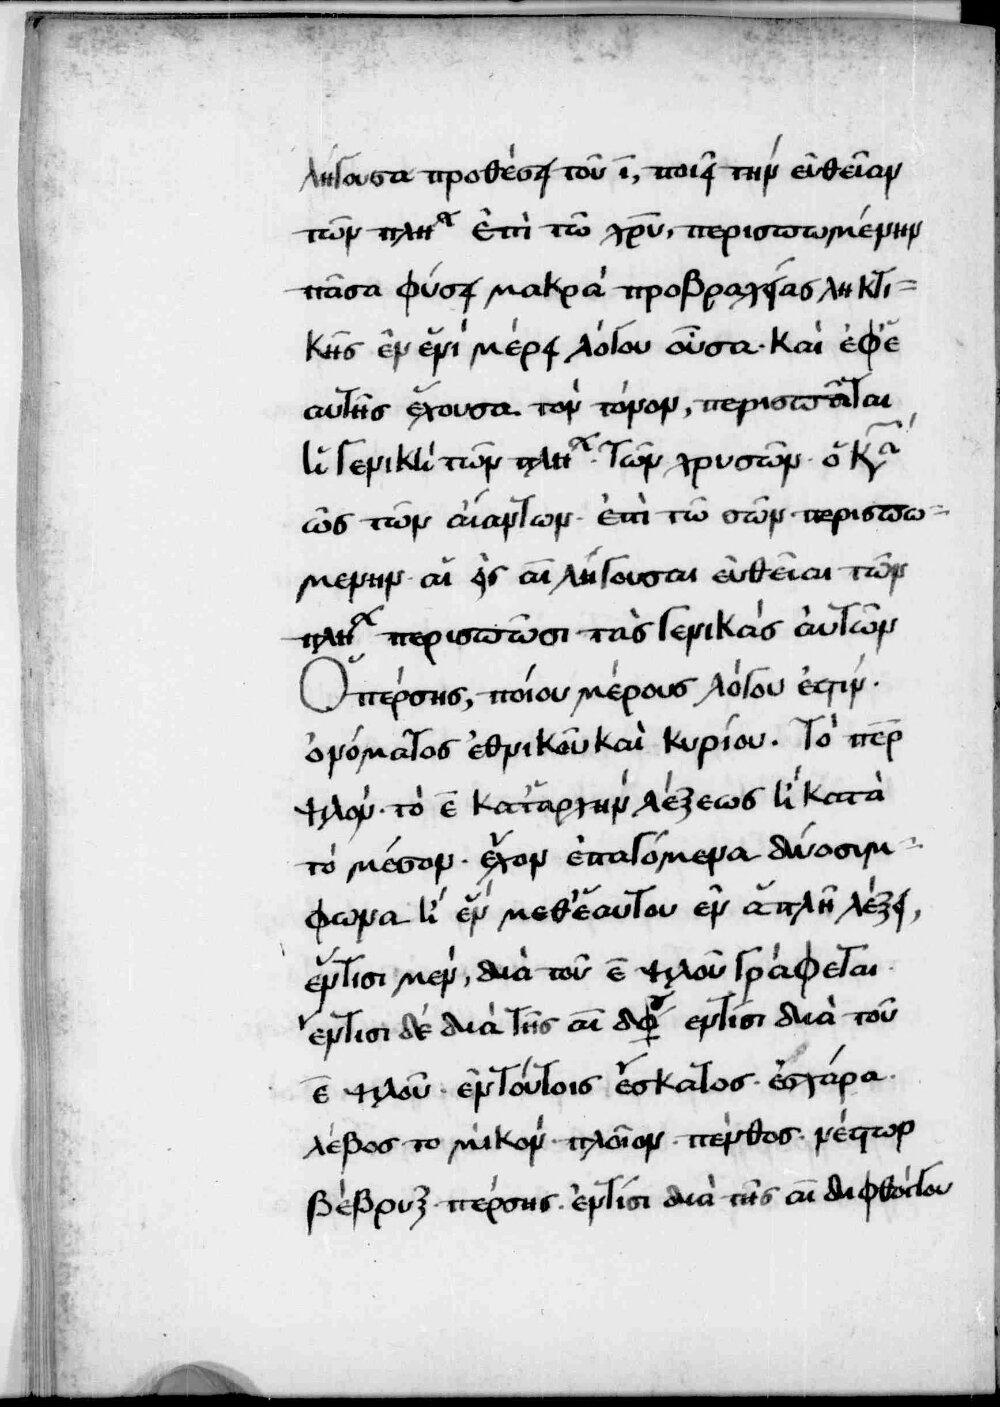 λήγουσα προθέσει τοῦ ῑ, ποιεῖ τὴν εὐθεῖαν
τῶν πλη^θ ἐπὶ τῶ χρ̅υ, περισπωμένην
πᾶσα φύσει μακρὰ προβραχείας ληκτι=
κῆς ἐν ἑνὶ μέρει λόγου οὖσα· καὶ ἐφ' ἑ
αυτῆς ἔχουσα τὸν τόνον, περισπᾶται
ἡ γενικὴ τῶν πλη^θ· τῶν χρυσῶν· ὁ κ
ὡς τῶν αἰάντων· ἐπὶ τῶ σῶν περισπω=
μενην· αἱ εἰς αι λήγουσαι εὐθεῖαι τῶν
πλη^θ περισπῶσι τὰς γενικὰς αὐτῶν
Ὁ πέρσης, ποίου μέρους λόγου ἐστίν·
ὀνόματος ἐθνικοῦ καὶ κυρίου. τὸ περ
ψιλόν· τὸ ε̅ κατ' ἀρχὴν λέξεως ἢ κατὰ
τὸ μέσον· ἔχον ἐπαγόμενα δύο σύμ=
φωνα ἢ ἓν μεθ' ἑαυτοῦ ἐν ἁπλῆ λέξει,
ἔντισι μεν, διὰ τοῦ ε̅ ψιλοῦ γράφεται·
ἔντισι δὲ διὰ τῆς αι διφ εντίσι διὰ τοῦ
ε̅ ψιλοῦ· ἐν τούτοις ἔσκατος· ἐσχάρα·
λέβος το μικὸν πλοῖον· πένθος· νέστωρ
βέβρυξ· πέρσης· ἐντίσι διὰ τῆς αι διφθόγγου